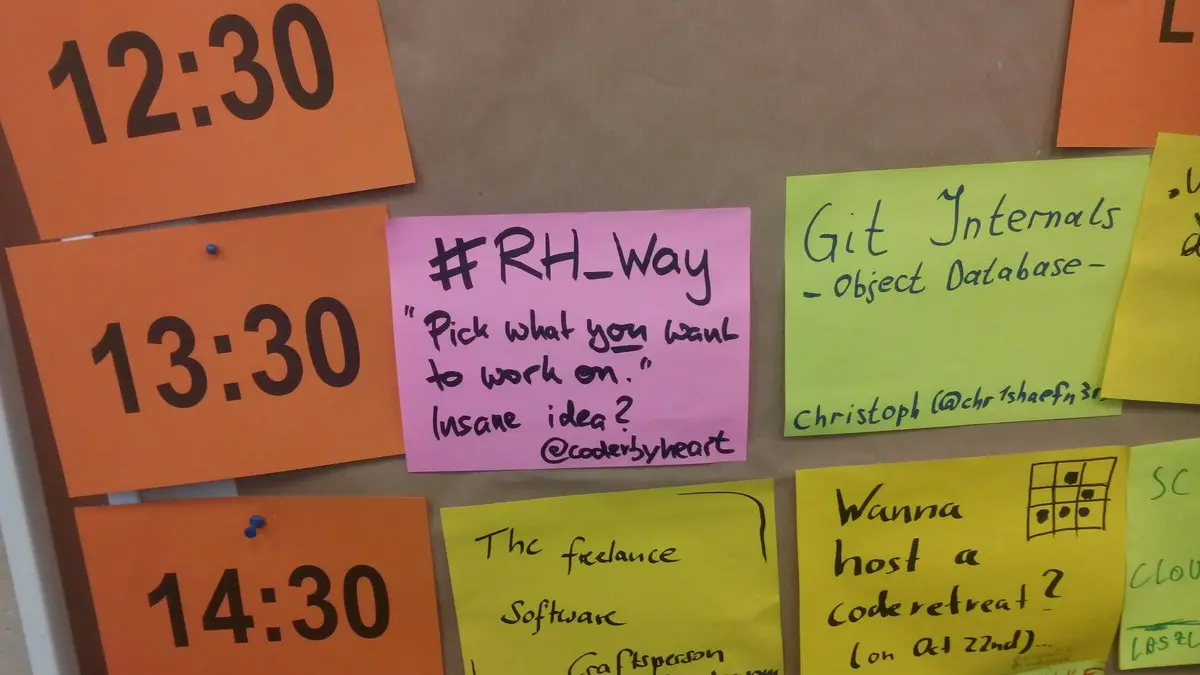 12:30
13:30
#RH_Way
"Pick what you want
to work on."
Insane idea?
@coderbyheart
Git Internals
- Object Database -
Christoph (@chr1shaefn3r
14:30
The freelance
Software
Craftsperson
Wanna
host a
coderetreat?
(on Oct 22nd)...
SC
CLOU